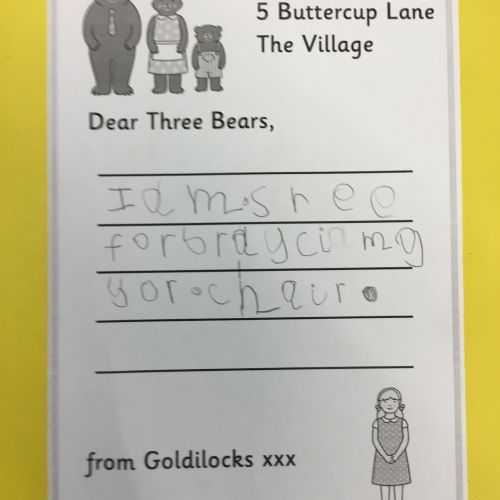 5 Buttercup Lane
The Village
Dear Three Bears,
I am.sree
forbrayciamg
yor.chair.
from Goldilocks xxx